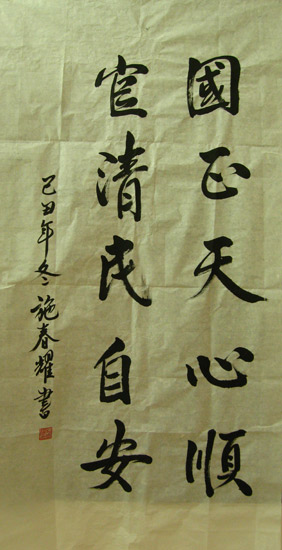 國正天心順
官清民自安
己丑年冬施春耀書